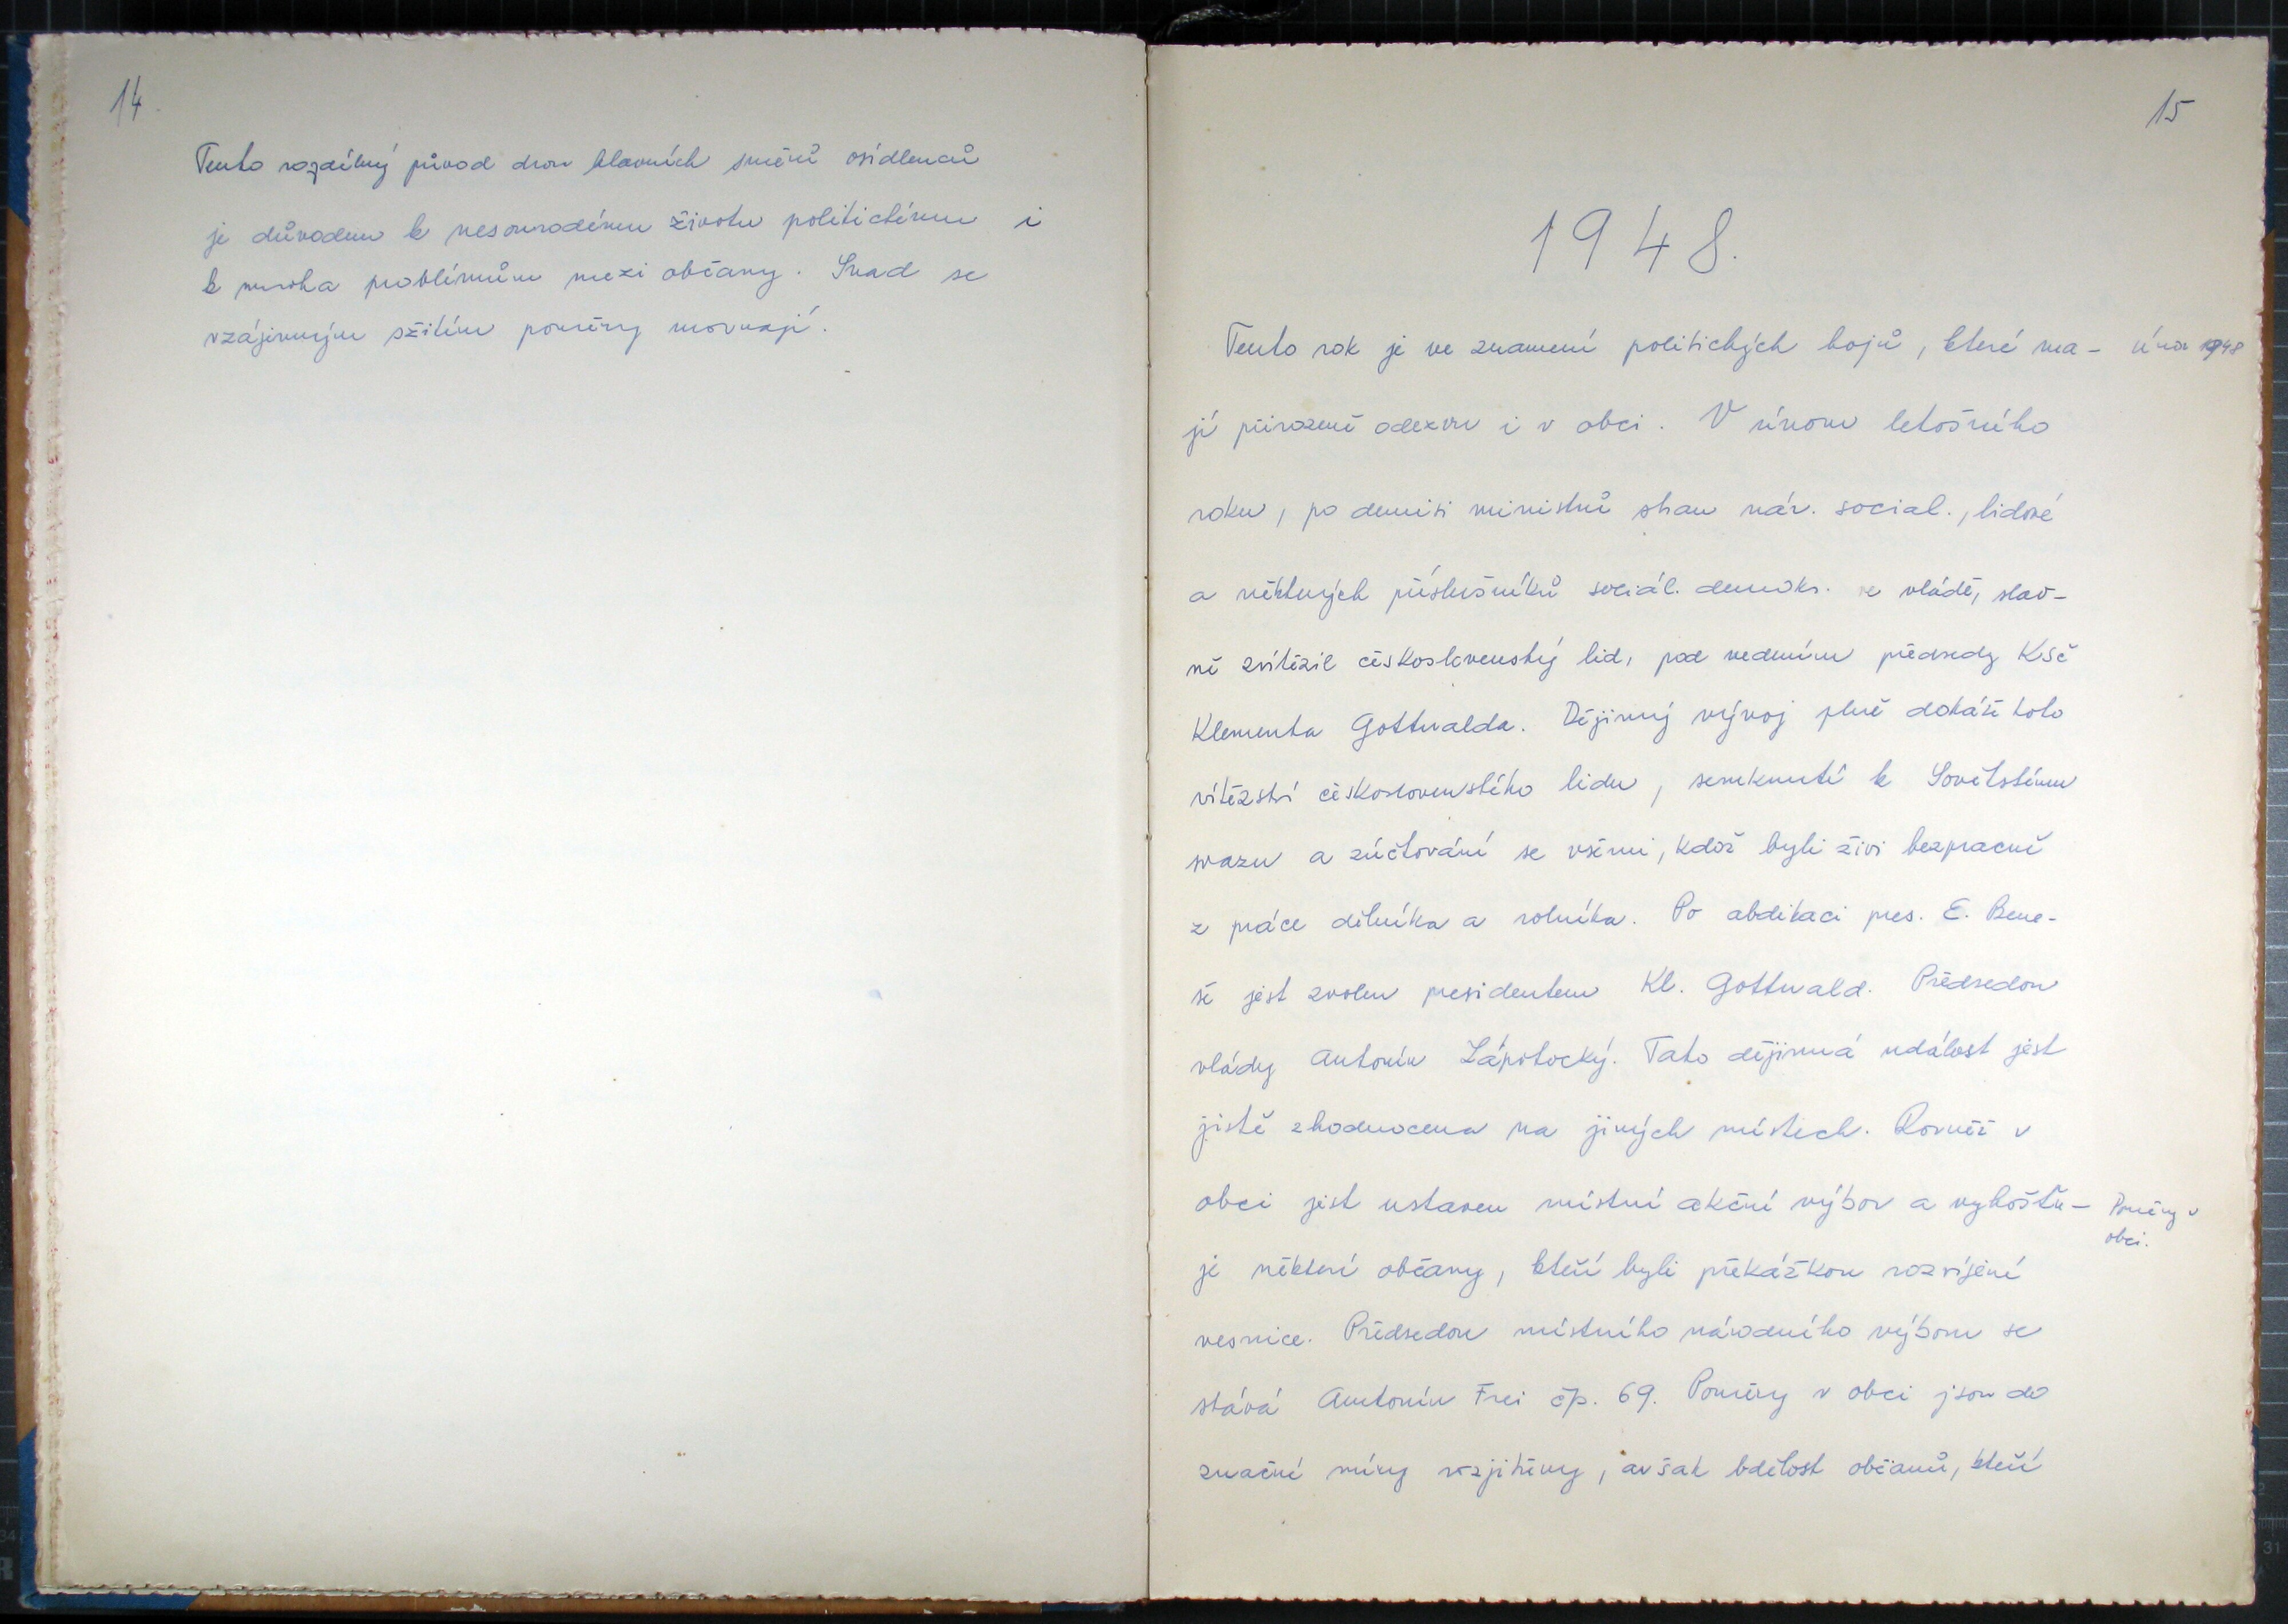 14.
Tento rozdílný původ dvou hlavních směrů osídlenců
je důvodem k nesourodému životu politickému i
k mnoha problémům mezi občany. Snad se
vzájemným sžitím poměry urovnají.
15
1948.
Tento rok je ve znamení politických bojů, které ma-
únor 1948
jí přirozeně odezvu i v obci. V únoru letošního
roku, po demisi ministrů stran nár. social., lidové
a některých příslušníků sociál. demokr. ve vládě, slav-
ně zvítězil československý lid, pod vedením předsedy KSČ
Klementa Gottwalda. Dějinný vývoj plně dokáže toto
vítězství československého lidu, semknutí k Sovětskému
svazu a zúčtování se všemi, kdož byli živi bezpracně
z práce dělníka a rolníka. Po abdikaci pres. E. Bene-
še jest zvolen presidentem Kl. Gottwald. Předsedou
vlády Antonín Zápotocký. Tato dějinná událost jest
jistě zhodnocena na jiných místech. Rovněž v
obci jest ustaven místní akční výbor a vyhošťu-
Poměry v
obci.
je některé občany, kteří byli překážkou rozvíjení
vesnice. Předsedou místního národního výboru se
stává Antonín Frei čp. 69. Poměry v obci jsou do
značné míry rozjitřeny, avšak bdělost občanů, kteří